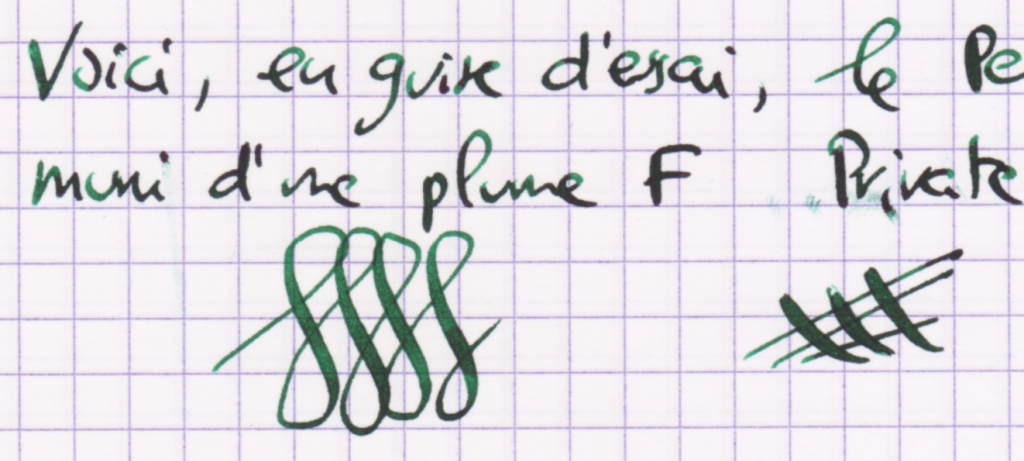 Voici, en guise d'essai, le Pe
muni d'une plume F Private